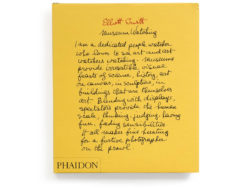 Elliott Erwitt
Museum Watching
I am a dedicated people watcher
who loves to see art and art
watchers watching. Museums
provide irresistible, visual
feasts of science, history, art
on canvas, in sculpture, in
buildings that are themselves
art. Blending with displays,
spectators provide the human
scale, thinking, judging,
sensibilities
It all makes fine hunting
for a furtive photographer
on the prowl
PHAIDON